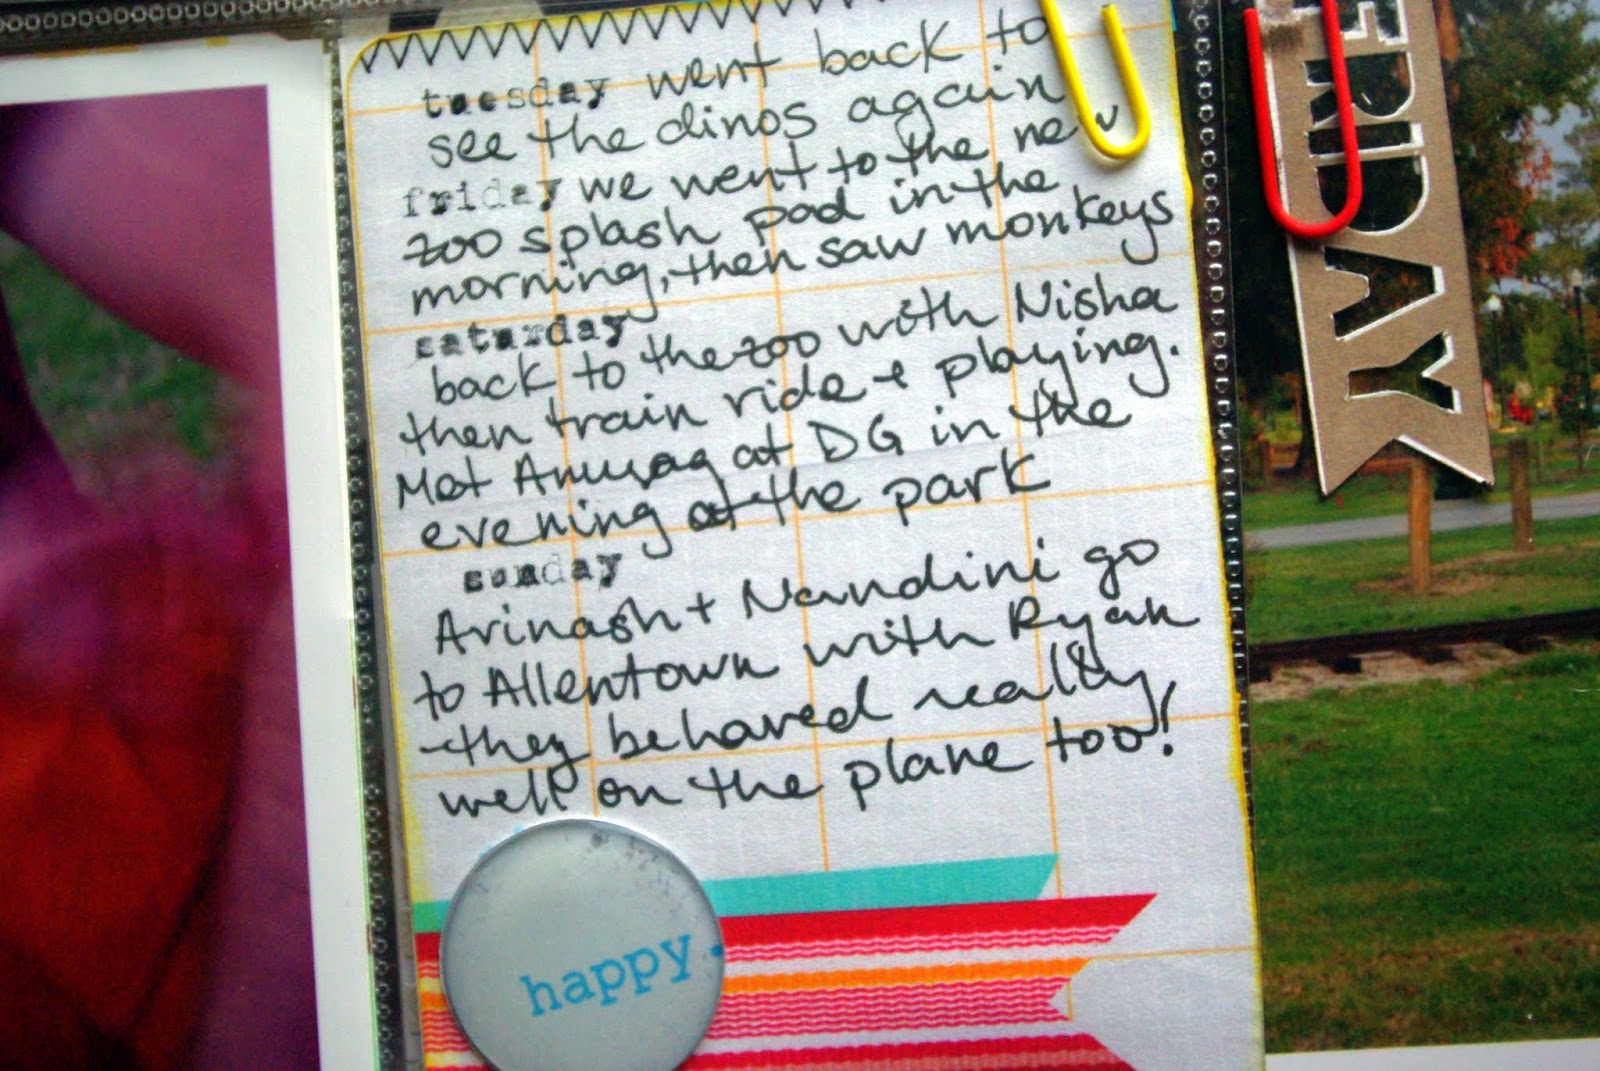 tuesday went back to
see the dinos again
friday we went to the new
zoo splash pad in the
morning, then saw monkeys
saturday
back to the zoo with Nisha
then train ride + playing.
Met Anurag at DG in the
evening at the park
sunday
Avinash + Nandini go
to Allentown with Ryan
- they behaved really
well on the plane too!
happy.
FRIDAY